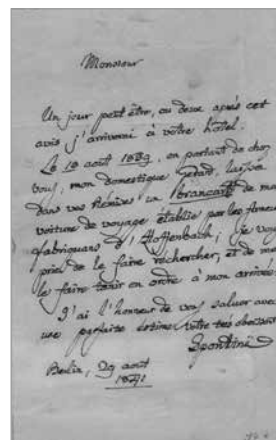 Monsieur
Un jour peut être, ou deux après cet
avis j'arriverai à votre hôtel.
Le 18 août 1839, en partant de chez
vous, mon domestique Gérard, laissa
dans vos Remises un brancard de ma
voiture de voyage établie par les fameux
fabriquans d'Hoffenbach; je vous
prie de le faire rechercher, et de me
le faire tenir en ordre à mon arrivée.
J'ai l'honneur de vous saluer avec
une parfaite estime, votre très obéissant
Spontini
Berlin, 29 août
1841